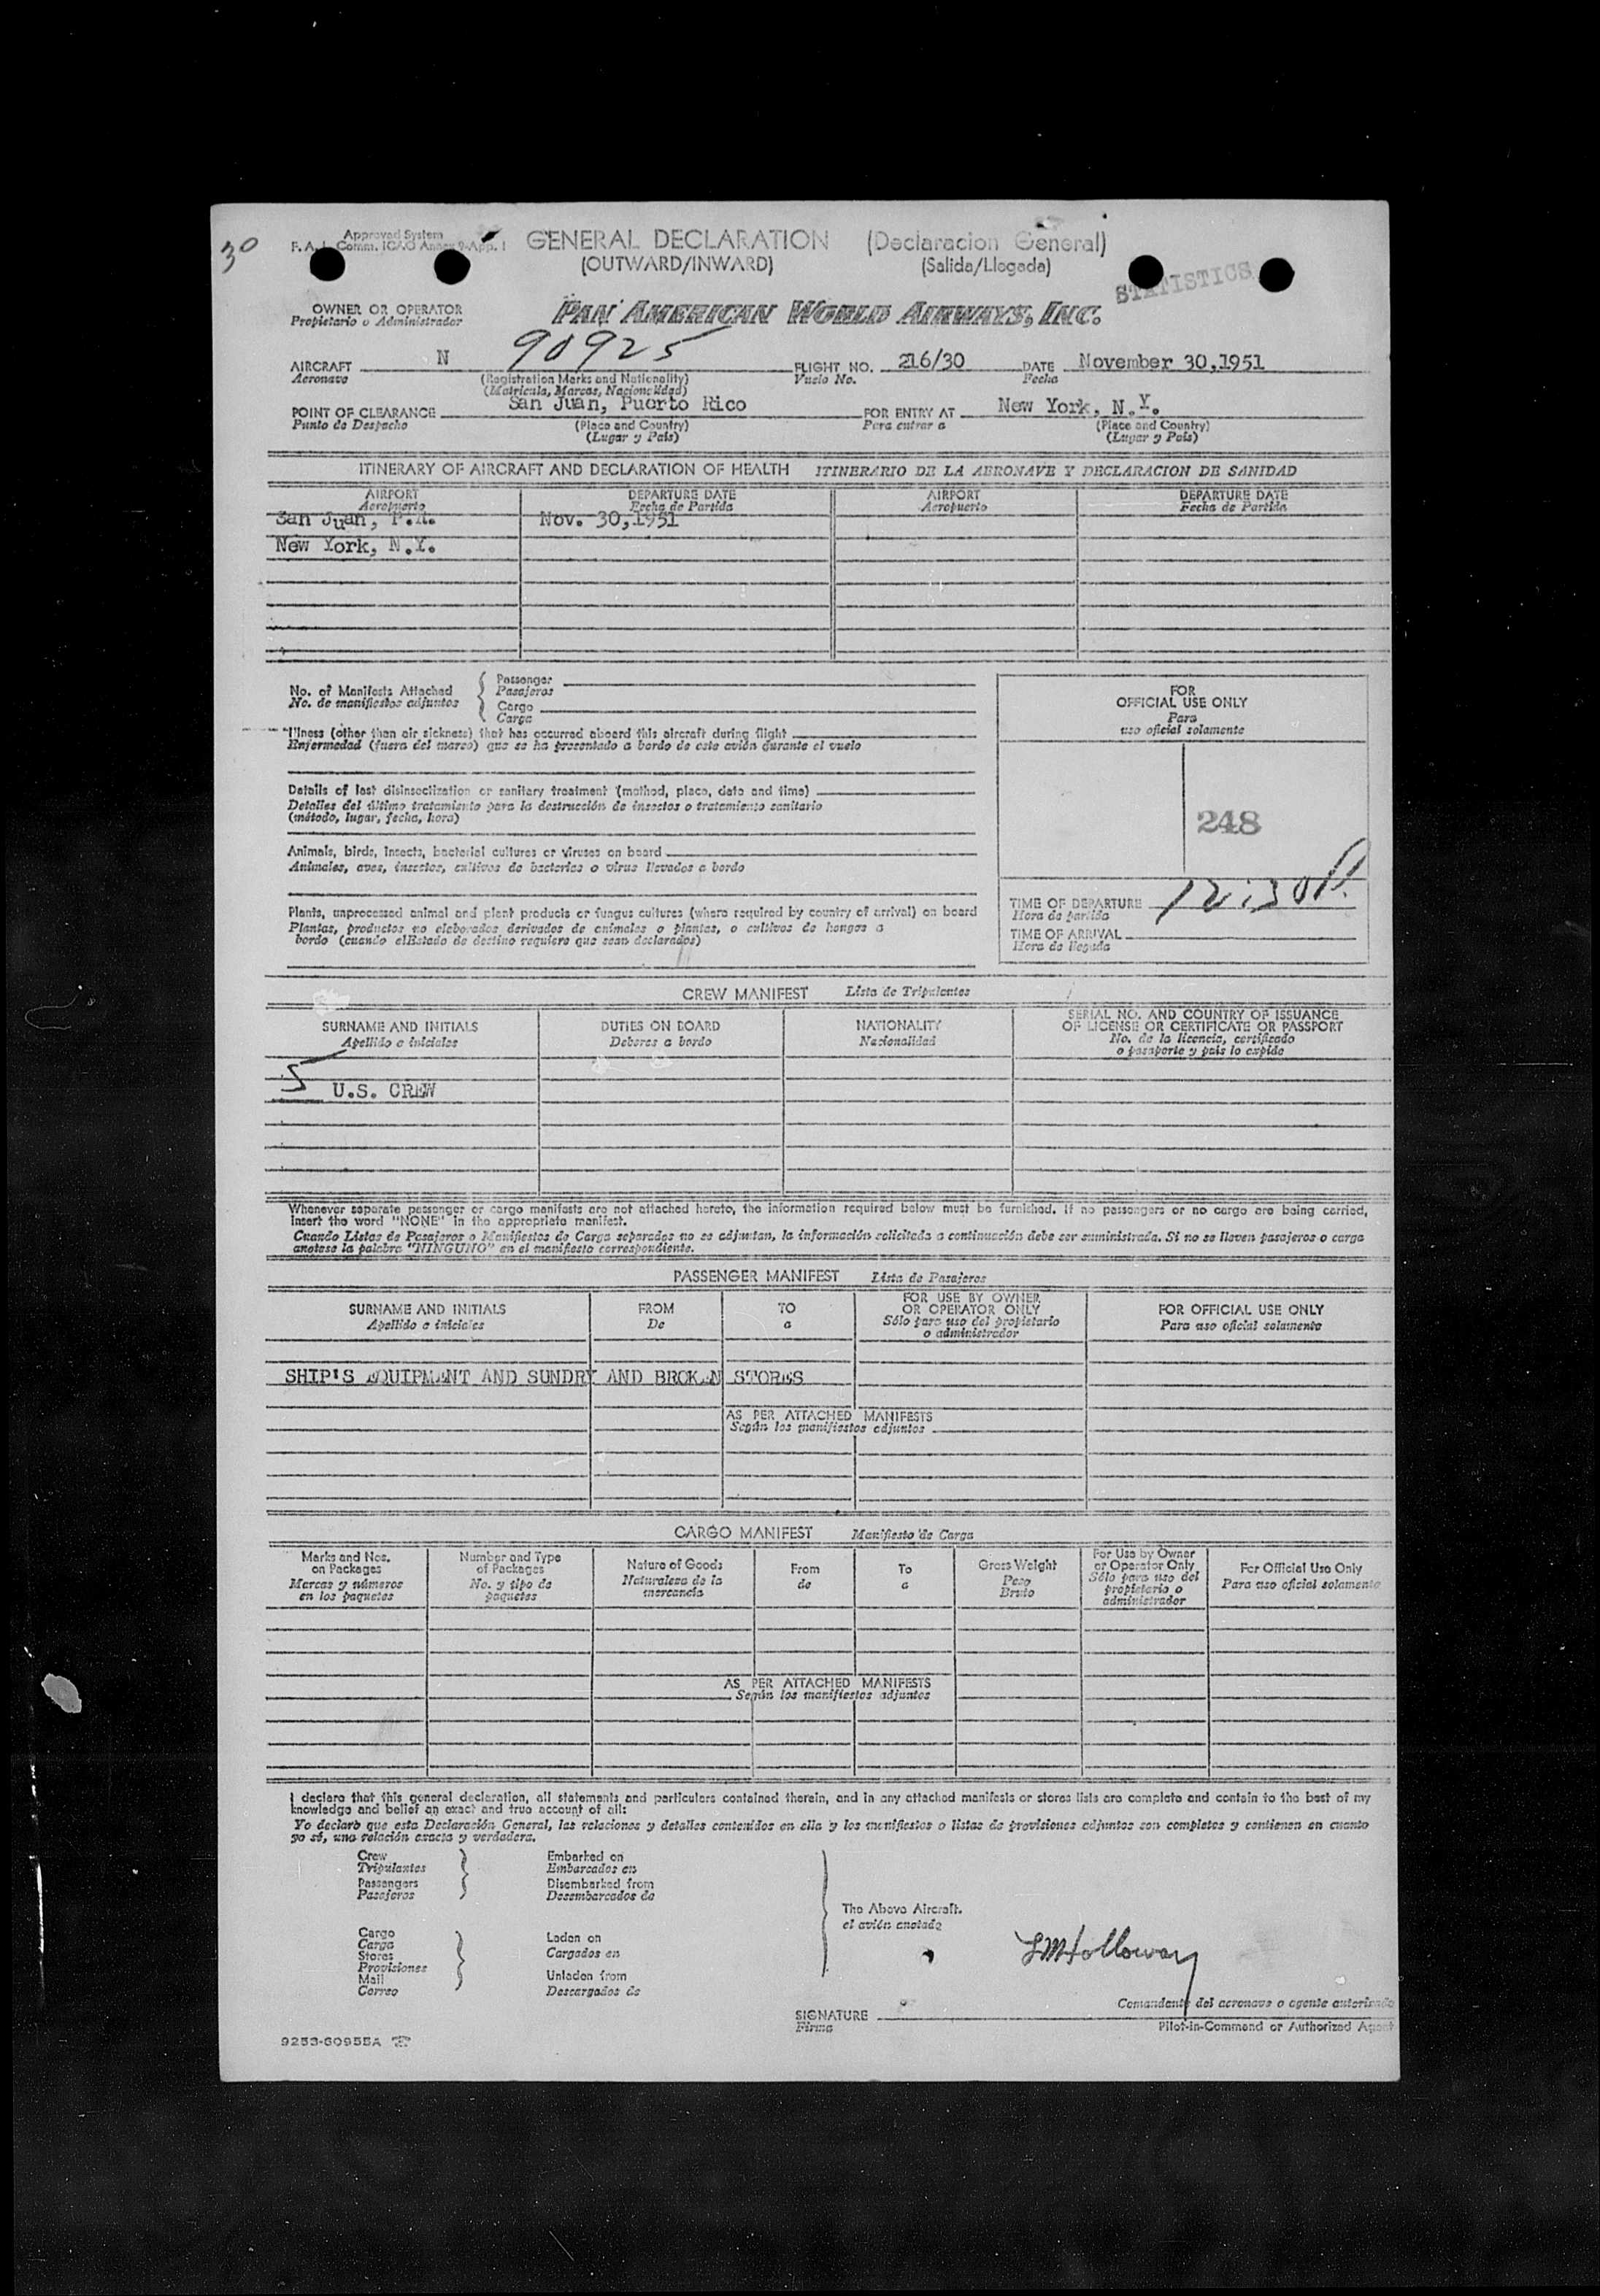 30
Approved System
F. A. L. Comm. ICAO Annex 9-App. 1
GENERAL DECLARATION (Declaracion General)
(OUTWARD/INWARD) (Salida/Llegada)
STATISTICS
OWNER OR OPERATOR
Propietario o Administrador
PAN AMERICAN WORLD AIRWAYS, INC.
AIRCRAFT N 90925 FLIGHT NO. 216/30 DATE November 30,1951
Aeronave (Registration Marks and Nationality) Vuelo No. Fecha
(Matricula, Marcas, Nacionalidad)
POINT OF CLEARANCE San Juan, Puerto Rico FOR ENTRY AT New York, N.Y.
Punto de Despacho (Place and Country) Para entrar a (Place and Country)
(Lugar y País) (Lugar y País)
ITINERARY OF AIRCRAFT AND DECLARATION OF HEALTH ITINERARIO DE LA AERONAVE Y DECLARACION DE SANIDAD
AIRPORT DEPARTURE DATE AIRPORT DEPARTURE DATE
Aeropuerto Fecha de Partida Aeropuerto Fecha de Partida
San Juan, P.R. Nov. 30,1951
New York, N.Y.
No. of Manifests Attached
No. de manifiestos adjuntos
Passenger
Pasajeros
Cargo
Carga
Illness (other than air sickness) that has occurred aboard this aircraft during flight
Enfermedad (fuera del mareo) que se ha presentado a bordo de este avión durante el vuelo
Details of last disinsectization or sanitary treatment (method, place, date and time)
Detalles del último tratamiento para la destrucción de insectos o tratamiento sanitario
(método, lugar, fecha, hora)
Animals, birds, insects, bacterial cultures or viruses on board
Animales, aves, insectos, cultivos de bacterias o virus llevados a bordo
Plants, unprocessed animal and plant products or fungus cultures (where required by country of arrival) on board
Plantas, productos no elaborados derivados de animales o plantas, o cultivos de hongos a
bordo (cuando elEstado de destino requiere que sean declarados)
FOR
OFFICIAL USE ONLY
Para
uso oficial solamente
248
TIME OF DEPARTURE 12:30P.
Hora de partida
TIME OF ARRIVAL
Hora de llegada
CREW MANIFEST Lista de Tripulantes
SURNAME AND INITIALS DUTIES ON BOARD NATIONALITY SERIAL NO. AND COUNTRY OF ISSUANCE
OF LICENSE OR CERTIFICATE OR PASSPORT
Apellido e iniciales Deberes a bordo Nacionalidad No. de la licencia, certificado
o pasaporte y pais lo expide
5 U.S. CREW
Whenever separate passenger or cargo manifests are not attached hereto, the information required below must be furnished. If no passengers or no cargo are being carried,
insert the word "NONE" in the appropriate manifest.
Cuando Listas de Pasajeros o Manifiestos de Carga separados no se adjuntan, la información solicitada a continuación debe ser suministrada. Si no se lleven pasajeros o carga
anotese la palabra "NINGUNO" en el manifiesto correspondiente.
PASSENGER MANIFEST Lista de Pasajeros
SURNAME AND INITIALS FROM TO FOR USE BY OWNER
OR OPERATOR ONLY FOR OFFICIAL USE ONLY
Apellido e iniciales De a Sólo para uso del propietario
o administrador Para uso oficial solamente
SHIP'S EQUIPMENT AND SUNDRY AND BROKEN STORES
AS PER ATTACHED MANIFESTS
Según los manifiestos adjuntos
CARGO MANIFEST Manifiesto de Carga
Marks and Nos.
on Packages
Marcas y números
en los paquetes
Number and Type
of Packages
No. y tipo de
paquetes
Nature of Goods
Naturaleza de la
mercancía
From
de
To
a
Gross Weight
Peso
Bruto
For Use by Owner
or Operator Only
Sólo para uso del
propietario o
administrador
For Official Use Only
Para uso oficial solamente
AS PER ATTACHED MANIFESTS
Según los manifiestos adjuntos
I declare that this general declaration, all statements and particulars contained therein, and in any attached manifests or stores lists are complete and contain to the best of my
knowledge and belief an exact and true account of all:
Yo declaro que esta Declaración General, las relaciones y detalles contenidos en ella y los manifiestos o listas de provisiones adjuntos son completos y contienen en cuanto
yo sé, una relación exacta y verdadera.
Crew
Tripulantes
Passengers
Pasajeros
Embarked on
Embarcados en
Disembarked from
Desembarcados de
Cargo
Carga
Stores
Provisiones
Mail
Correo
Laden on
Cargados en
Unladen from
Descargados de
The Above Aircraft.
el avión anotado
LMHolloway
SIGNATURE
Firma
Comandante del aeronave o agente autorizado
Pilot-in-Command or Authorized Agent
9253-60955A